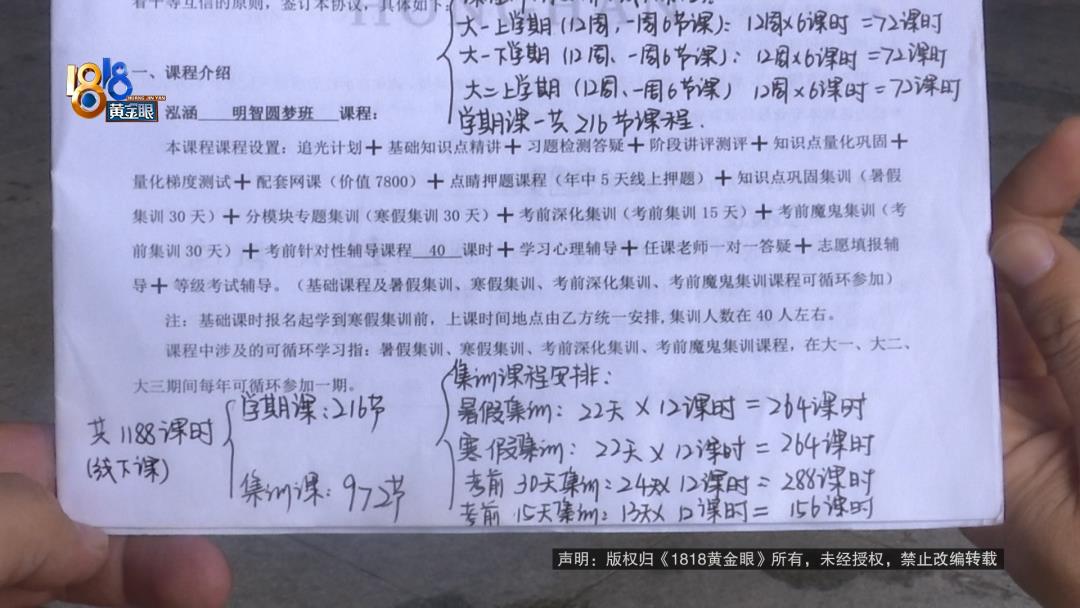 着平等互信的原则，签订本协议，具体如下：
大一上学期（12周，一周6节课）：12周×6课时=72课时
大一下学期（12周、一周6节课）：12周×6课时=72课时
大二上学期（12周、一周6节课） 12周×6课时=72课时
学期课一共216节课程.
一、课程介绍
泓涵 明智圆梦班 课程：
本课程课程设置：追光计划＋基础知识点精讲＋习题检测答疑＋阶段讲评测评＋知识点量化巩固＋
量化梯度测试＋配套网课（价值7800）＋点睛押题课程（年中5天线上押题）＋知识点巩固集训（暑假
集训30天）＋分模块专题集训（寒假集训30天）＋考前深化集训（考前集训15天）＋考前魔鬼集训（考
前集训30天）＋考前针对性辅导课程 40 课时＋学习心理辅导＋任课老师一对一答疑＋志愿填报辅
导＋等级考试辅导。（基础课程及暑假集训、寒假集训、考前深化集训、考前魔鬼集训课程可循环参加）
注：基础课时报名起学到寒假集训前，上课时间地点由乙方统一安排,集训人数在40人左右。
课程中涉及的可循环学习指：暑假集训、寒假集训、考前深化集训、考前魔鬼集训课程，在大一、大二、
大三期间每年可循环参加一期。
共1188课时
(线下课)
学期课：216节
集训课：972节
集训课程安排：
暑假集训：22天×12课时=264课时
寒假集训：22天×12课时=264课时
考前30天集训：24天×12课时=288课时
考前15天集训：13天×12课时=156课时
1818
HUANG JIN YAN
黄金眼
声明：版权归《1818黄金眼》所有，未经授权，禁止改编转载